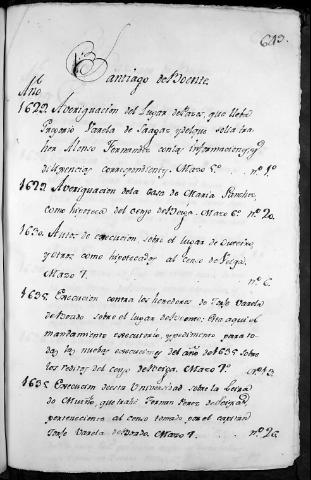 643.
Santiago de Boente.
Año
1622. Averiguación del Lugar de Pazos, que llebó
Gregorio Varela de Saagas y del que solia tra-
her Alonso Fernandez con las informaciones, y
diligencias correspondientes. Mazo 5.º nº 1º
1622. Averiguacion de la Casa de Maria Sanchez,
como hipoteca del censo de Veiga. Mazo 6º nº 20.
1630. Autos de execucion sobre el lugar de Outeiro,
y otros como hipotecados al Censo de Veiga.
Mazo 7. nº 6.
1635. Execucion contra los herederos de Jorje Varela
de Prado sobre el lugar de Boente; Esta aqui el
mandamiento executorio, y pedimento para to-
das las nuebas execuciones del año de 1635 sobre
los reditos del censo de Veiga. Mazo 7º nº 13.
1635. Execucion de esta Universidad sobre la Leira
do Muiño, que trahe Fernan Perez de
perteneciente al censo tomado por el capitan
Jorje Varela de Prado. Mazo 7. nº 26.